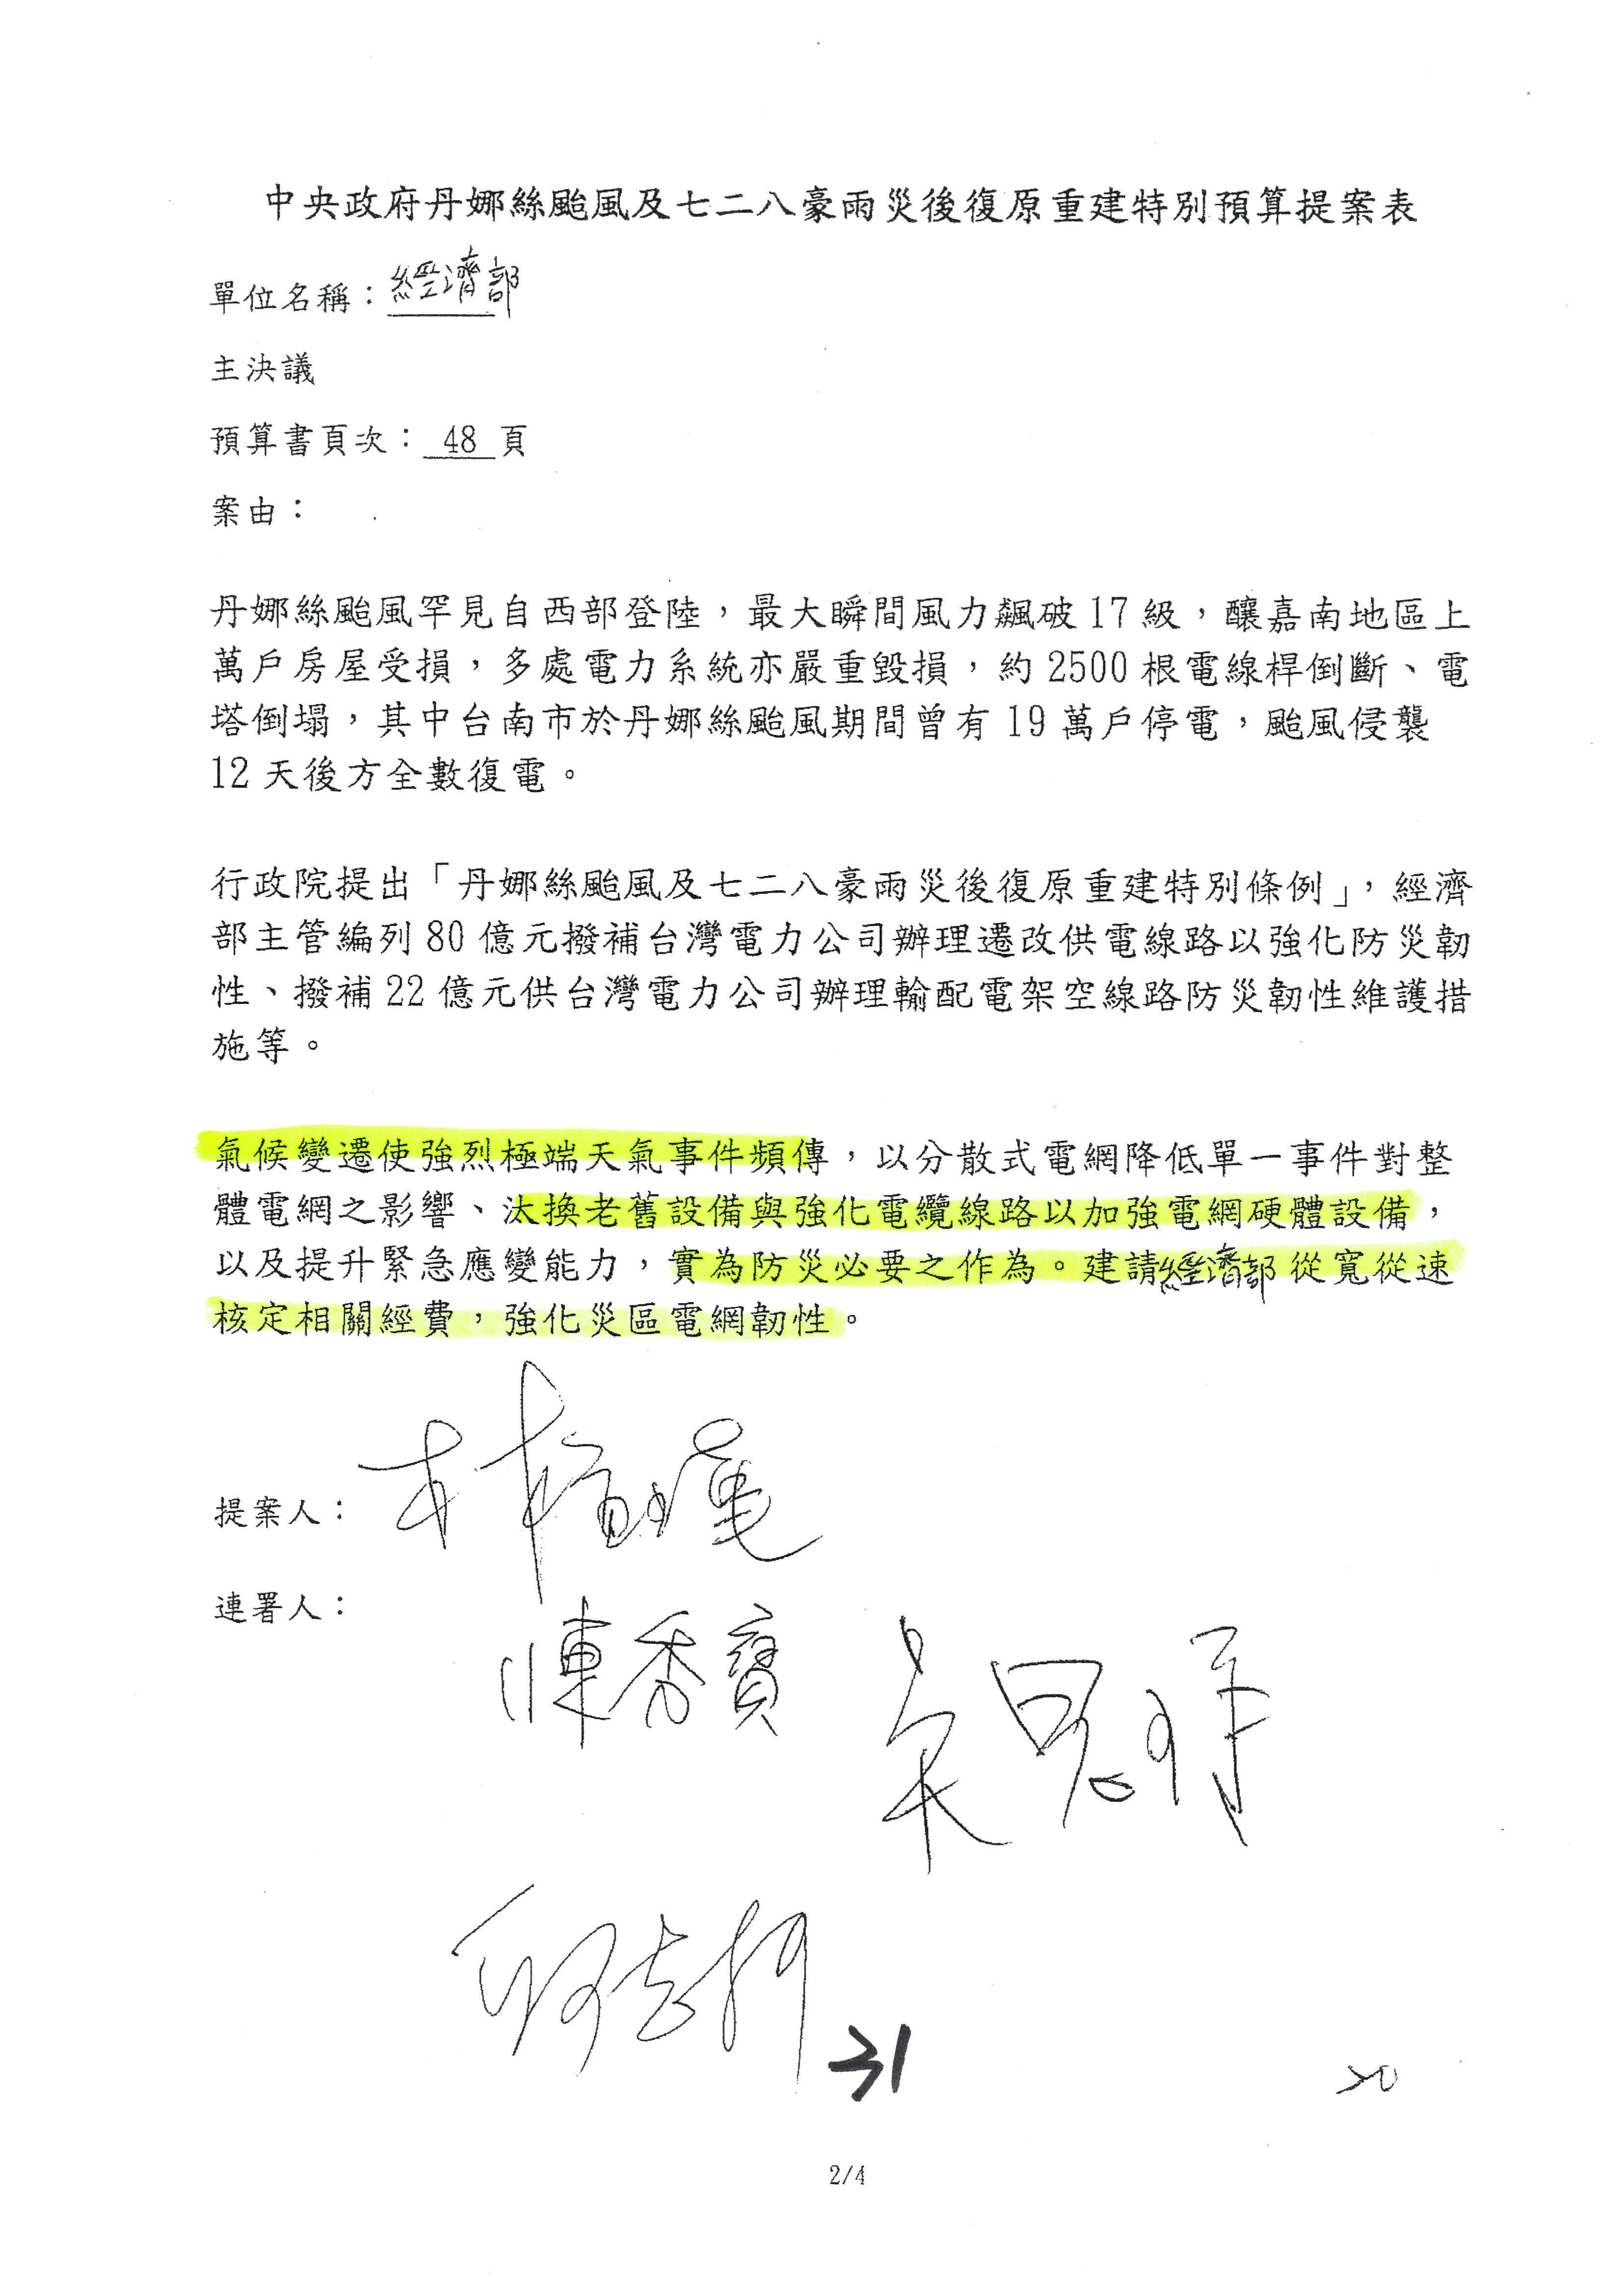 中央政府丹娜絲颱風及七二八豪雨災後復原重建特別預算提案表
單位名稱：經濟部
主決議
預算書頁次：48頁
案由：
丹娜絲颱風罕見自西部登陸，最大瞬間風力飆破17級，釀嘉南地區上
萬戶房屋受損，多處電力系統亦嚴重毀損，約2500根電線桿倒斷、電
塔倒塌，其中台南市於丹娜絲颱風期間曾有19萬戶停電，颱風侵襲
12天後方全數復電。
行政院提出「丹娜絲颱風及七二八豪雨災後復原重建特別條例」，經濟
部主管編列80億元撥補台灣電力公司辦理遷改供電線路以強化防災韌
性、撥補22億元供台灣電力公司辦理輸配電架空線路防災韌性維護措
施等。
氣候變遷使強烈極端天氣事件頻傳，以分散式電網降低單一事件對整
體電網之影響、汰換老舊設備與強化電纜線路以加強電網硬體設備，
以及提升緊急應變能力，實為防災必要之作為。建請經濟部從寬從速
核定相關經費，強化災區電網韌性。
提案人：
連署人：
陳秀寳
31
30
2/4